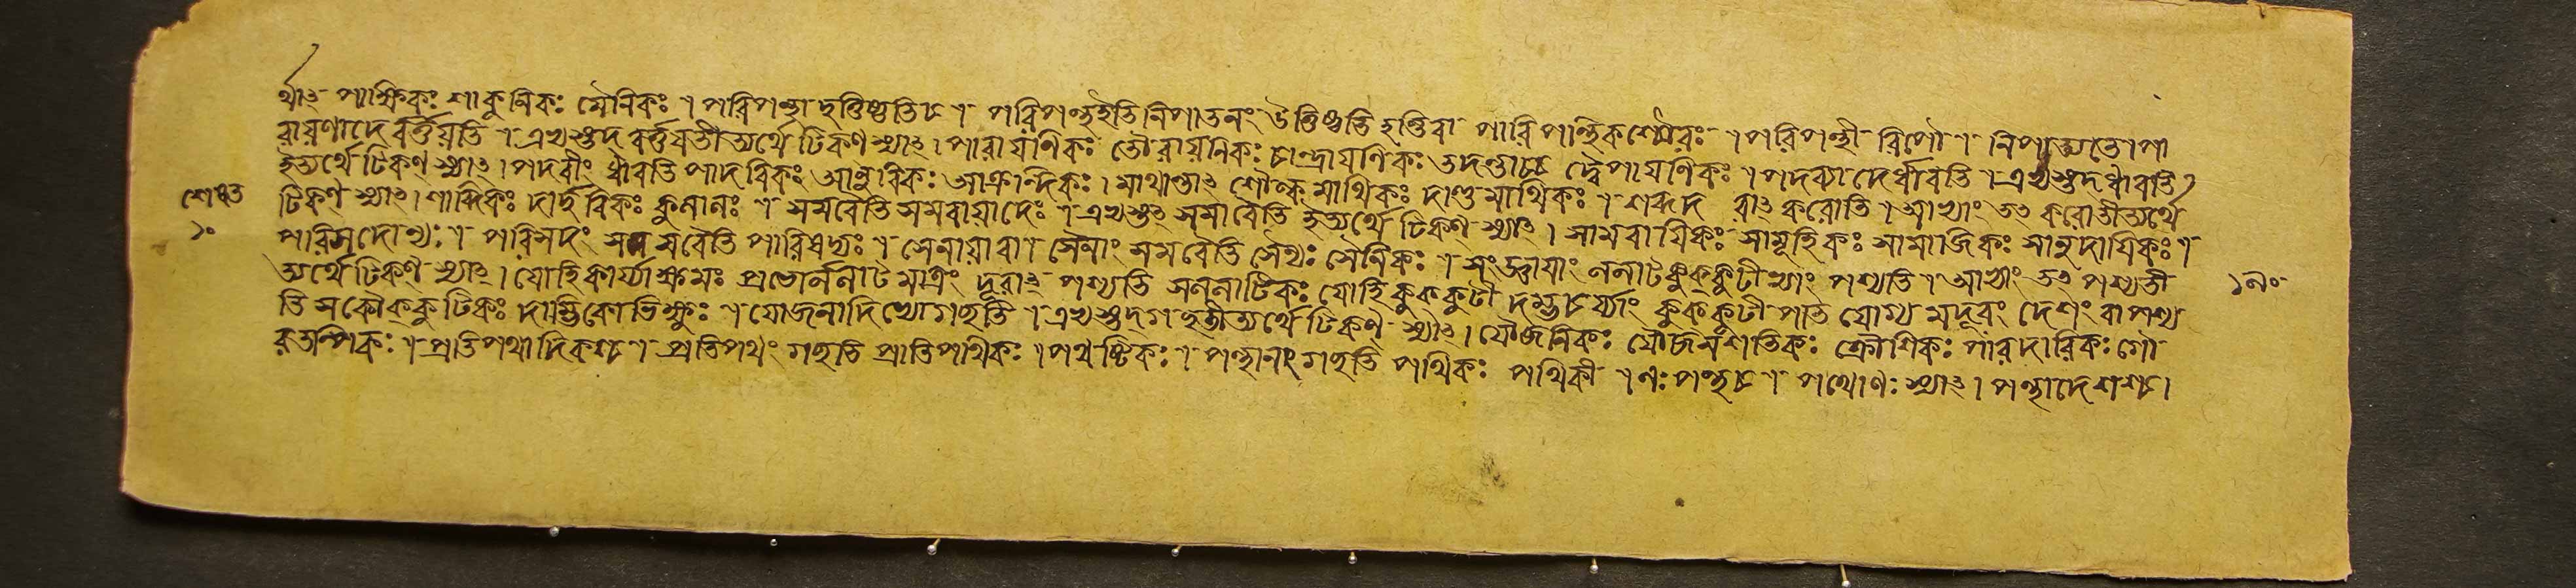 র্থাৎ পাক্ষিকঃ শাকুনিকঃ মৈনিকঃ । পরিপন্থা দ্ধন্তিষ্ঠতিচ । পরিপন্থইতি নিপাতনং তন্তিষ্ঠতি হন্তিবা পারিপান্থিকশ্চৌরঃ । পরিপন্থী রিপৌ । নিপাত্যতে। পা
রায়ণাদে র্বর্ত্তয়তি । এভ্যস্তদ্ বর্ত্তয়তীত্যর্থে টিকণ স্যাৎ। পারায়ণিকঃ তৌরায়ণিকঃ চান্দ্রায়ণিকঃ তদন্তাচ্চ দ্বৈপায়ণিকঃ । পদব্যাদের্ধাবতি । এভ্যস্তদ্ ধাবতি
ইত্যর্থে টিকণ্ স্যাৎ। পদবীং ধাবতি পাদবিকঃ আনুবিকঃ আক্রন্দিকঃ । মাথান্তাৎ শৌল্কমাথিকঃ দাণ্ডমাথিকঃ । শব্দদ র্দ্দরাৎ করোতি । আভ্যাং তৎ করোতীত্যর্থে
টিকণ্ স্যাৎ। শাব্দিকঃ দার্দ্দুরিকঃ কুলালঃ । সমবৈতি সমবায়াদেঃ । এভ্যস্তৎ সমবৈতি ইত্যর্থে টিকণ্ স্যাৎ। সামবায়িকঃ সামূহিকঃ সামাজিকঃ সামুদায়িকঃ ।
পরিষদোণ্যঃ । পরিষদং সমবৈতি পারিষদ্যঃ । সেনায়া বা । সেনাং সমবৈতি সৈন্যঃ সৈনিকঃ । সংজ্ঞায়াং ললাটকুক্কুটীভ্যাং পশ্যতি । আভ্যাং তৎ পশ্যতী
ত্যর্থে টিকণ্ স্যাৎ। যোহি কার্য্যাক্ষমঃ প্রভোর্ললাটমাত্রং দূরাৎ পশ্যতি সলালাটিকঃ যোহি কুক্কুটী দম্ভচর্য্যাং কুক্কুটী পাত যোগ্য মদূরং দেশং বা পশ্য
তি সকৌক্কুটিকঃ দাম্ভিকোভিক্ষুঃ । যোজনাদিভ্যোগচ্ছতি । এভ্যস্তদ্গচ্ছতীত্যর্থে টিকণ্ স্যাৎ। যৌজনিকঃ যৌজনশাতিকঃ ক্রৌশিকঃ পারদারিকঃ গৌ
রুতল্পিকঃ । প্রতিপথাদিকশ্চ । প্রতিপথং গচ্ছতি প্রাতিপথিকঃ । পথষ্টিকঃ । পন্থানং গচ্ছতি পথিকঃ পথিকী । ণঃ পন্থশ্চ । পথোণঃ স্যাৎ। পন্থাদেশশ্চ।
১০
১৭০